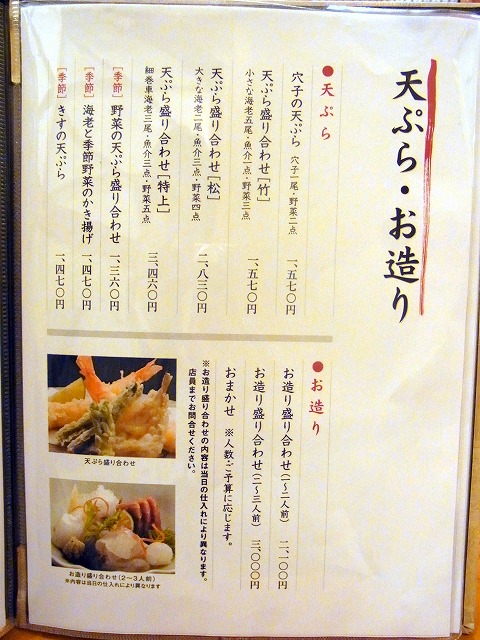 天ぷら・お造り
●天ぷら
穴子の天ぷら 穴子一尾・野菜二点 一、五七〇円
天ぷら盛り合わせ[竹] 一、五七〇円
小さな海老五尾・魚介一点・野菜三点
天ぷら盛り合わせ[松] 二、八三〇円
大きな海老二尾・魚介三点・野菜四点
天ぷら盛り合わせ[特上] 三、四六〇円
細巻車海老三尾・魚介三点・野菜五点
[季節] 野菜の天ぷら盛り合わせ 一、三六〇円
[季節] 海老と季節野菜のかき揚げ 一、四七〇円
[季節] きすの天ぷら 一、四七〇円
●お造り
お造り盛り合わせ(一〜二人前) 二、一〇〇円
お造り盛り合わせ(二〜三人前) 三、〇〇〇円
おまかせ ※人数・ご予算に応じます。
※お造り盛り合わせの内容は当日の仕入れにより異なります。
店員までお問合せください。
天ぷら盛り合わせ
お造り盛り合わせ(2〜3人前)
※内容は当日の仕入により異なります